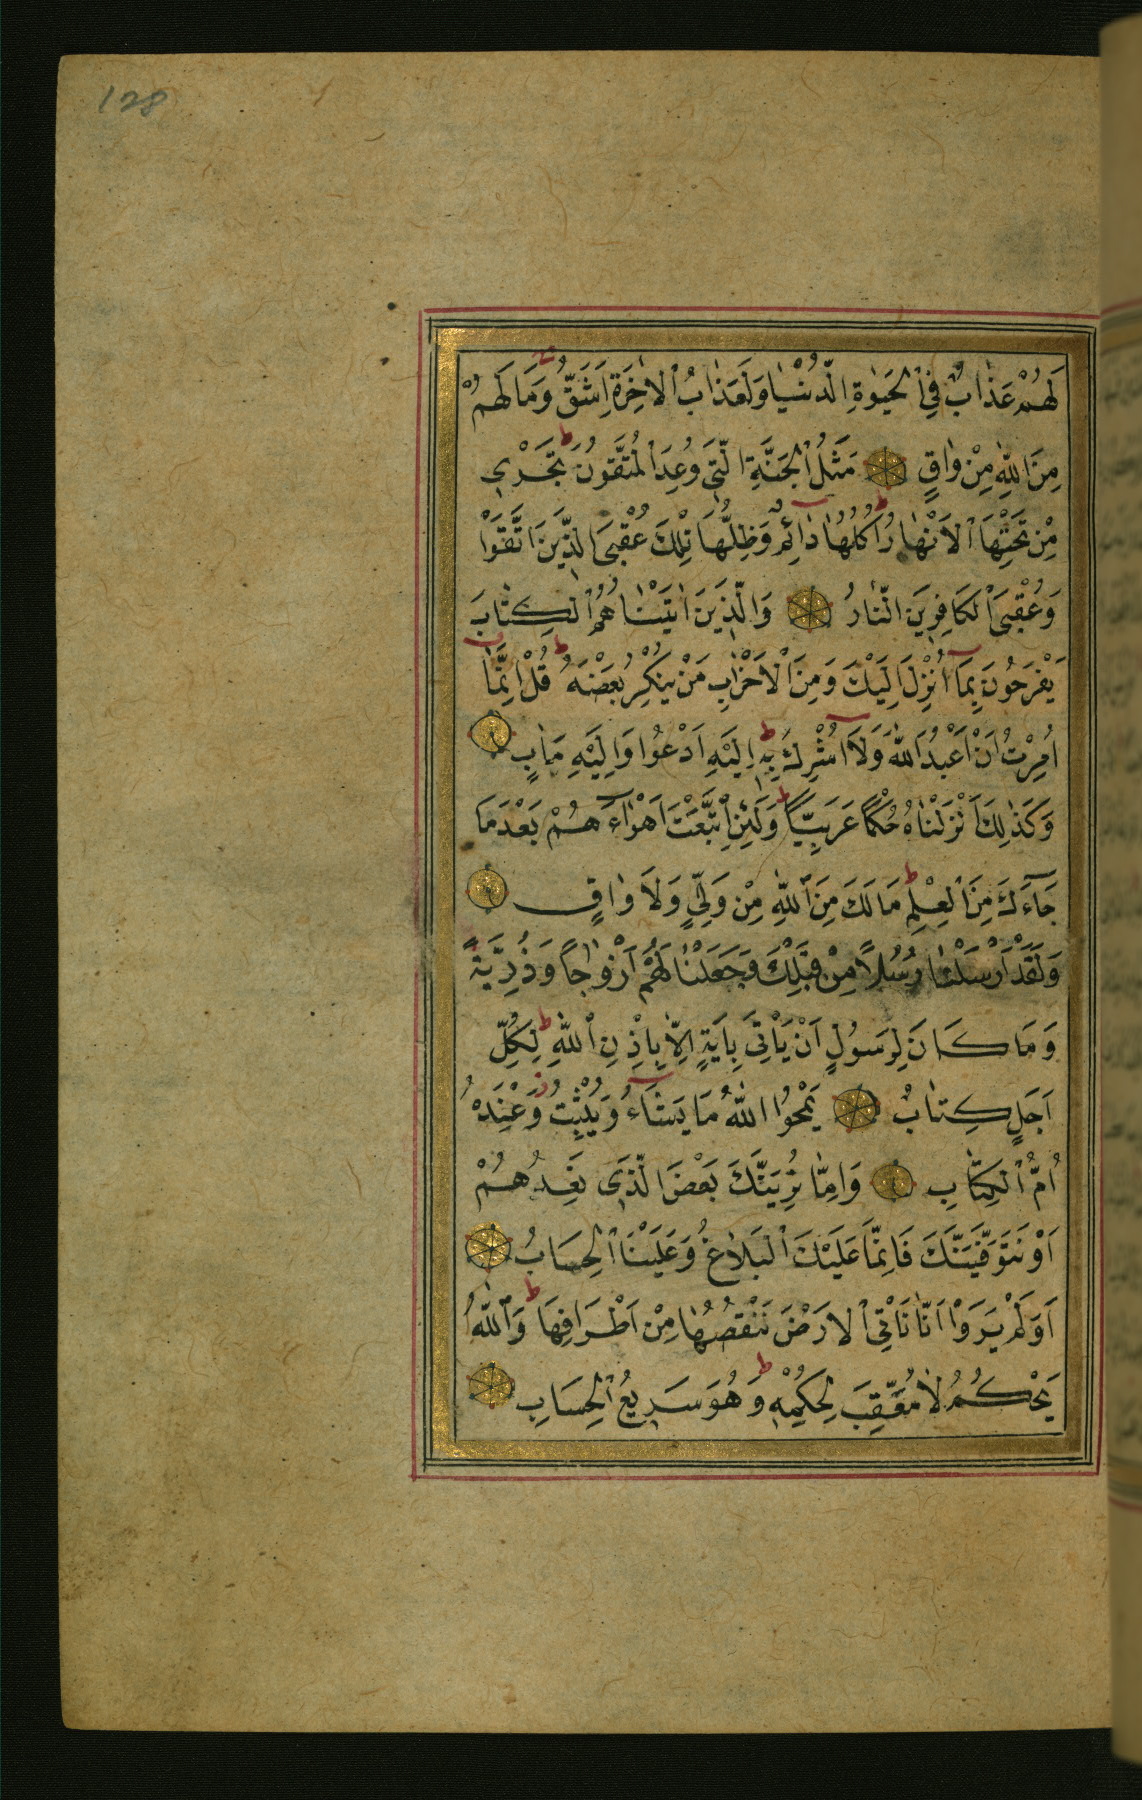 128
لَهُمْ عَذَابٌ فِي الْحَيٰوةِ الدُّنْيَا وَلَعَذَابُ الْاٰخِرَةِ اَشَقُّ وَمَا لَهُمْ
مِنَ اللّٰهِ مِنْ وَاقٍ مَثَلُ الْجَنَّةِ الَّتِي وُعِدَ الْمُتَّقُونَ تَجْرِي
مِنْ تَحْتِهَا الْاَنْهَارُ اُكُلُهَا دَآئِمٌ وَظِلُّهَا تِلْكَ عُقْبَى الَّذِينَ اتَّقَوْا
وَعُقْبَى الْكَافِرِينَ النَّارُ وَالَّذِينَ اٰتَيْنَاهُمُ الْكِتَابَ
يَفْرَحُونَ بِمَآ اُنْزِلَ اِلَيْكَ وَمِنَ الْاَحْزَابِ مَنْ يُنْكِرُ بَعْضَهُ قُلْ اِنَّمَآ
اُمِرْتُ اَنْ اَعْبُدَ اللّٰهَ وَلَآ اُشْرِكَ بِهِ اِلَيْهِ اَدْعُوا وَاِلَيْهِ مَاٰبِ
وَكَذٰلِكَ اَنْزَلْنَاهُ حُكْمًا عَرَبِيًّا وَلَئِنِ اتَّبَعْتَ اَهْوَآءَهُمْ بَعْدَمَا
جَآءَكَ مِنَ الْعِلْمِ مَا لَكَ مِنَ اللّٰهِ مِنْ وَلِيٍّ وَلَا وَاقٍ
وَلَقَدْ اَرْسَلْنَا رُسُلًا مِنْ قَبْلِكَ وَجَعَلْنَا لَهُمْ اَزْوَاجًا وَذُرِّيَّةً
وَمَا كَانَ لِرَسُولٍ اَنْ يَاْتِيَ بِاٰيَةٍ اِلَّا بِاِذْنِ اللّٰهِ لِكُلِّ
اَجَلٍ كِتَابٌ يَمْحُوا اللّٰهُ مَا يَشَآءُ وَيُثْبِتُ وَعِنْدَهُ
اُمُّ الْكِتَابِ وَاِمَّا نُرِيَنَّكَ بَعْضَ الَّذِي نَعِدُهُمْ
اَوْ نَتَوَفَّيَنَّكَ فَاِنَّمَا عَلَيْكَ الْبَلَاغُ وَعَلَيْنَا الْحِسَابُ
اَوَلَمْ يَرَوْا اَنَّا نَاْتِي الْاَرْضَ نَنْقُصُهَا مِنْ اَطْرَافِهَا وَاللّٰهُ
يَحْكُمُ لَا مُعَقِّبَ لِحُكْمِهِ وَهُوَ سَرِيعُ الْحِسَابِ